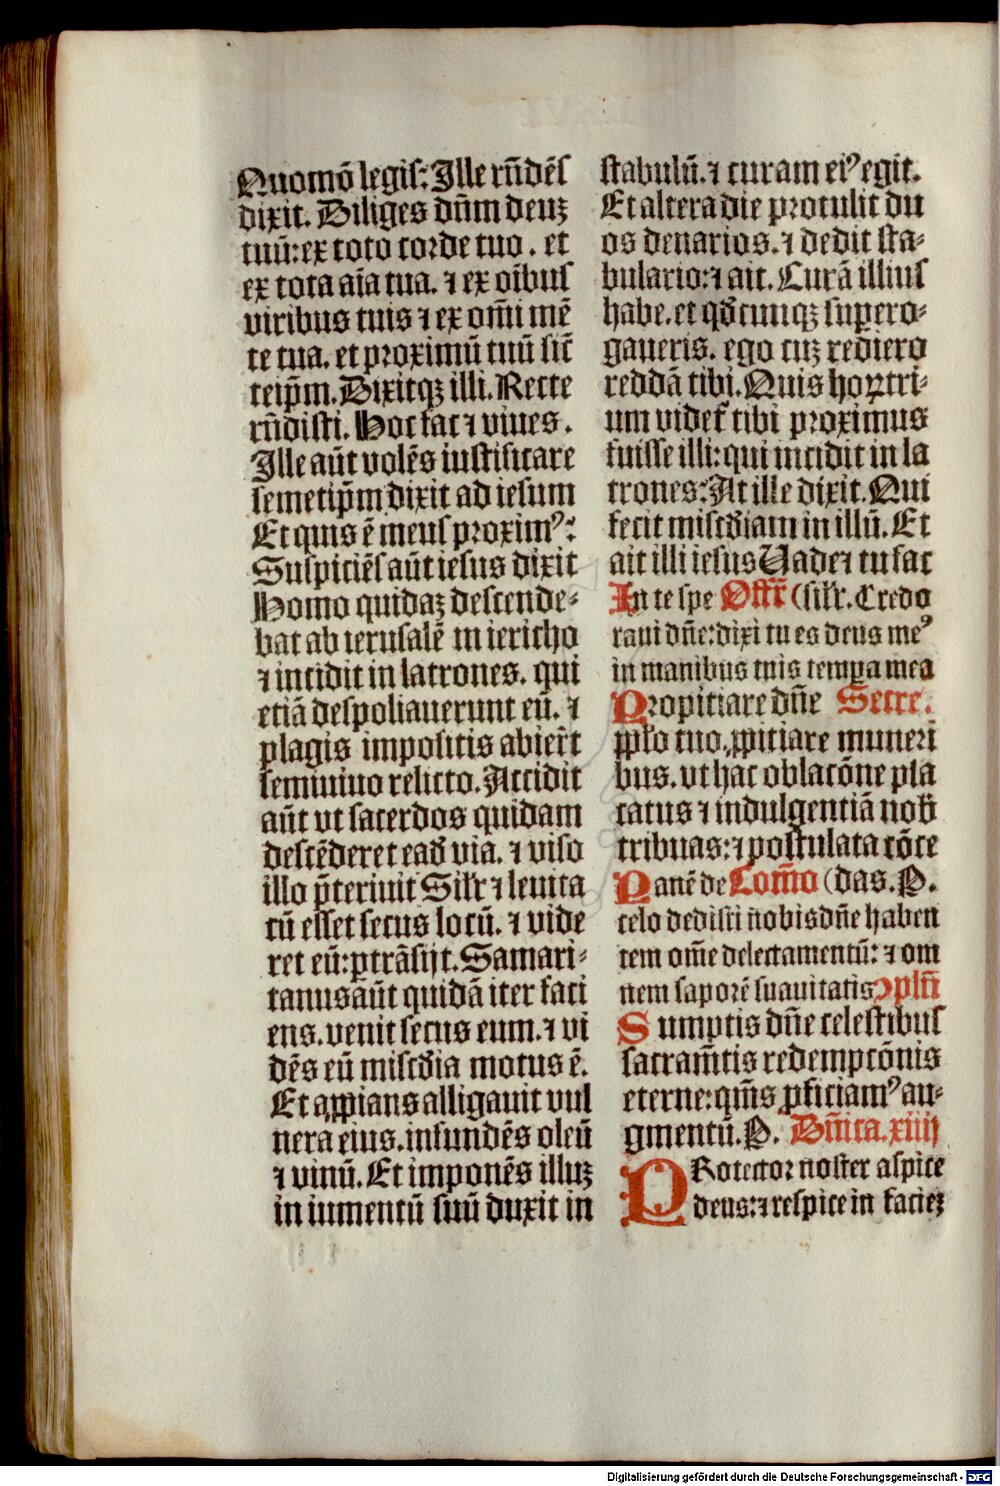 Quomō legis: Ille rn̄dēs
dixit. Diliges dn̄m deuꝫ
tuū: ex toto corde tuo. et
ex tota aīa tua. ⁊ ex oībus
viribus tuis ⁊ ex om̄i mē
te tua. et proximū tuū sic̄
teip̄m. Dixitqꝫ illi. Recte
rn̄disti. Hoc fac ⁊ viues.
Ille aūt volēs iustificare
semetip̄m dixit ad iesum
Et quis ē meus proximꝰ:
Suspiciēs aūt iesus dixit
Homo quidaꝫ descende-
bat ab ierusalē in iericho
⁊ incidit in latrones. qui
etiā despoliauerunt eū. ⁊
plagis impositis abier̄t
semiuiuo relicto. Accidit
aūt vt sacerdos quidam
descēderet ead̄ via. ⁊ viso
illo p̄teriuit Sil̄r ⁊ leuita
cū esset secus locū. ⁊ vide
ret eū: ꝑtrāsijt. Samari-
tanus aūt quidā iter faci
ens. venit secus eum. ⁊ vi
dēs eū misc̄dia motus ē.
Et aꝓpians alligauit vul
nera eius. infundēs oleū
⁊ vinū. Et imponēs illuꝫ
in iumentū suū duxit in
stabulū. ⁊ curam eiꝰ egit.
Et altera die protulit du
os denarios. ⁊ dedit sta-
bulario: ⁊ ait. Curā illius
habe. et qd̄cunqꝫ supero-
gaueris. ego cuꝫ rediero
reddā tibi. Quis hoꝝ tri-
um videt̄ tibi proximus
fuisse illi: qui incidit in la
trones: At ille dixit. Qui
fecit misc̄diam in illū. Et
ait illi iesus Vade ⁊ tu fac
In te spe Offr̄ (sil̄r. Credo
raui dn̄e: dixi tu es deus meꝰ
in manibus tuis tempa mea
Propitiare dn̄e Secre.
ppl̄o tuo. ꝓpitiare muneri
bus. vt hac oblacōne pla
catus ⁊ indulgentiā nob̄
tribuas: ⁊ postulata cōce
Panē de Com̄o (das. P.
celo dedisti nobis dn̄e haben
tem om̄e delectamentū: ⁊ om
nem saporē suauitatis ꝯpln̄
Sumptis dn̄e celestibus
sacram̄tis redemptōnis
eterne: qm̄s ꝓficiamꝰ au-
gmentū. P. Dn̄ica. xiiij
PRotector noster aspice
deus: ⁊ respice in facieꝫ
Digitalisierung gefördert durch die Deutsche Forschungsgemeinschaft - DFG